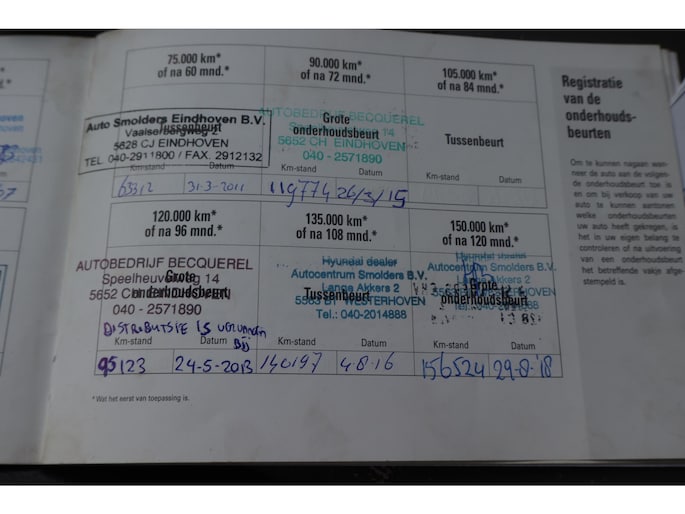 75.000 km*
of na 60 mnd.*
90.000 km*
of na 72 mnd.*
105.000 km*
of na 84 mnd.*
Auto Smolders Eindhoven B.V.
Vaalserbergweg 2
Tussenbeurt
5628 CJ EINDHOVEN
TEL. 040-2911800 / FAX. 2912132
Km-stand Datum
63312 31-3-2011
AUTOBEDRIJF BECQUEREL
Grote
onderhoudsbeurt
14
5652 CH EINDHOVEN
040 - 2571890
Km-stand Datum
119774 26/3/15
Tussenbeurt
Km-stand Datum
120.000 km*
of na 96 mnd.*
135.000 km*
of na 108 mnd.*
150.000 km*
of na 120 mnd.*
AUTOBEDRIJF BECQUEREL
Speelheuvelweg 14
Grote
onderhoudsbeurt
5652 CH EINDHOVEN
040 - 2571890
DISTRIBUTSIE IS VERVANGEN
Bij
Km-stand Datum
95123 24-5-2013
Hyundai dealer
Autocentrum Smolders B.V.
Lange Akkers 2
Tussenbeurt
5563 BT WESTERHOVEN
Tel.: 040-2014888
Km-stand Datum
140197 4-8-16
Hyundai dealer
Autocentrum Smolders B.V.
Lange Akkers 2
Grote
onderhoudsbeurt
WESTERHOVEN
Km-stand Datum
156524 29-8-'18
* Wat het eerst van toepassing is.
Registratie
van de
onderhouds-
beurten
Om te kunnen nagaan wan-
neer de auto aan de volgen-
de onderhoudsbeurt toe is
en om bij verkoop van uw
auto te kunnen aantonen
welke onderhoudsbeurten
uw auto heeft gekregen, is
het in uw eigen belang te
controleren of na uitvoering
van een onderhoudsbeurt
het betreffende vakje afge-
stempeld is.